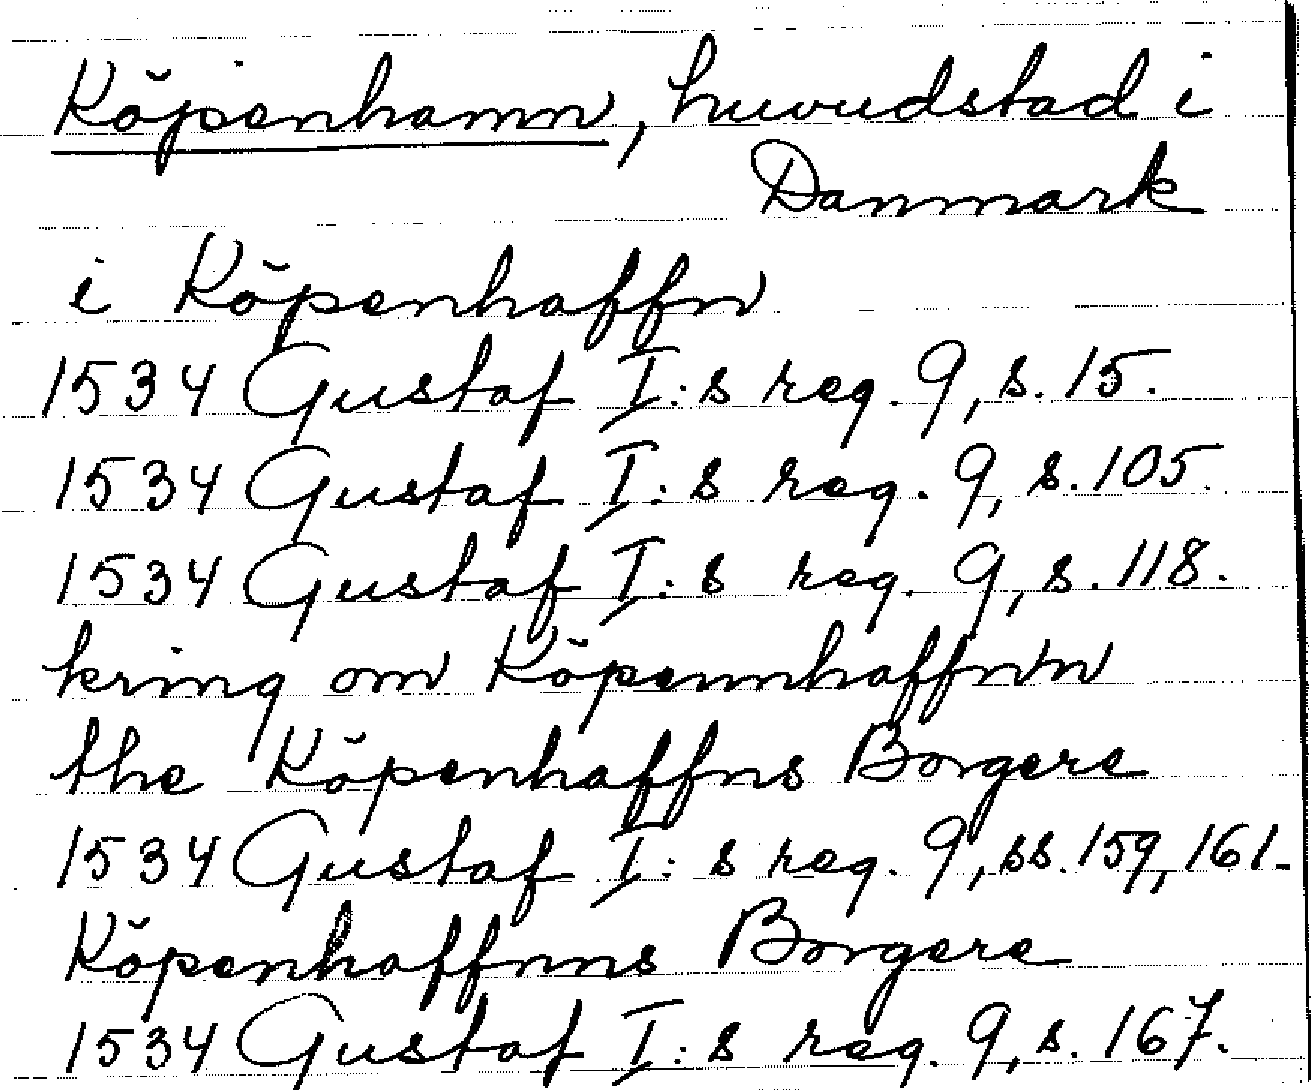 Köpenhamn, huvudstad i
Danmark
i Köpenhaffn
1534 Gustaf I:s reg. 9, s. 15.
1534 Gustaf I:s reg. 9, s. 105.
1534 Gustaf I:s reg. 9, s. 118.
kring om Köpennhaffnn
the Köpenhaffns Borgere
1534 Gustaf I:s reg. 9, ss. 159, 161.
Köpenhaffnns Borgere
1534 Gustaf I:s reg. 9, s. 167.